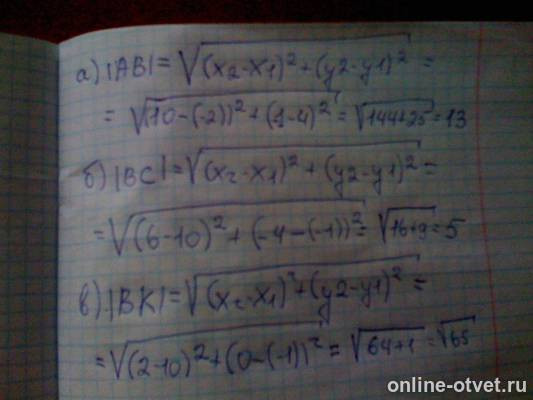 а) |AB| = √(x2-x1)² + (y2-y1)² =
= √(10-(-2))² + (1-4)² = √144+25 = 13
б) |BC| = √(x2-x1)² + (y2-y1)² =
= √(6-10)² + (-4-(-1))² = √16+9 = 5
в) |BK| = √(x2-x1)² + (y2-y1)² =
= √(2-10)² + (0-(-1))² = √64+1 = √65
online-otvet.ru